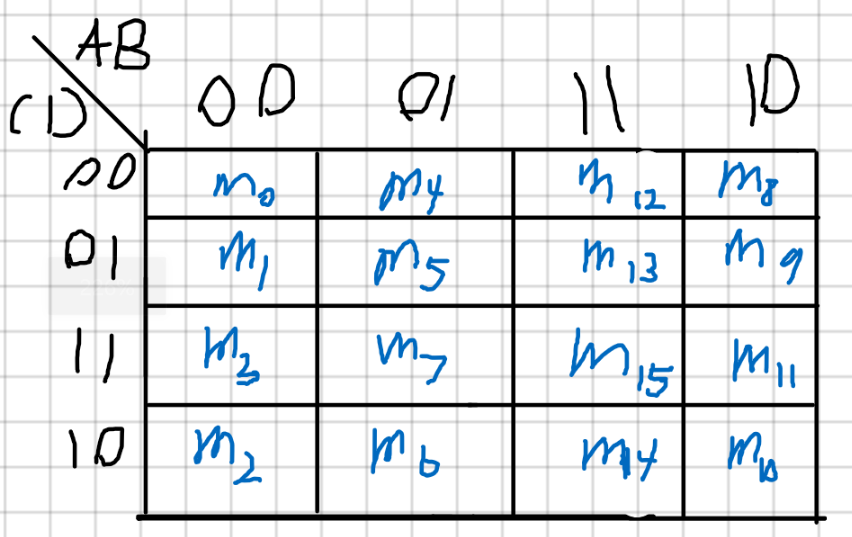 AB
CD 00 01 11 10
00 m0 m4 m12 m8
01 m1 m5 m13 m9
11 m3 m7 m15 m11
10 m2 m6 m14 m10